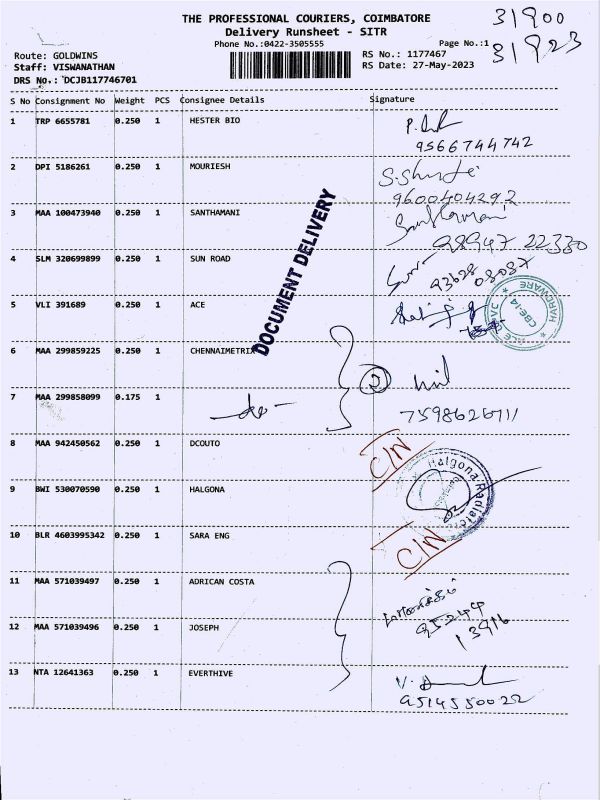 THE PROFESSIONAL COURIERS, COIMBATORE
31900
Delivery Runsheet - SITR
Phone No.:0422-3505555
Page No.:1
31923
Route: GOLDWINS
RS No.: 1177467
Staff: VISWANATHAN
RS Date: 27-May-2023
DRS No.: DCJB117746701
S No Consignment No Weight PCS Consignee Details Signature
1 TRP 6655781 0.250 1 HESTER BIO
9566744742
2 DPI 5186261 0.250 1 MOURIESH
9600404292
3 MAA 100473940 0.250 1 SANTHAMANI
98947 22330
4 SLM 320699899 0.250 1 SUN ROAD
93628 08087
5 VLI 391689 0.250 1 ACE
HARDWARE
CBE-14
DOCUMENT DELIVERY
6 MAA 299859225 0.250 1 CHENNAIMETRIX
2
7 MAA 299858099 0.175 1 -do-
7598626711
8 MAA 942450562 0.250 1 DCOUTO
C/N
9 BWI 530070590 0.250 1 HALGONA
Halgona Radiator
10 BLR 4603995342 0.250 1 SARA ENG
C/N
11 MAA 571039497 0.250 1 ADRICAN COSTA
95244
13916
12 MAA 571039496 0.250 1 JOSEPH
13 NTA 12641363 0.250 1 EVERTHIVE
9514550022